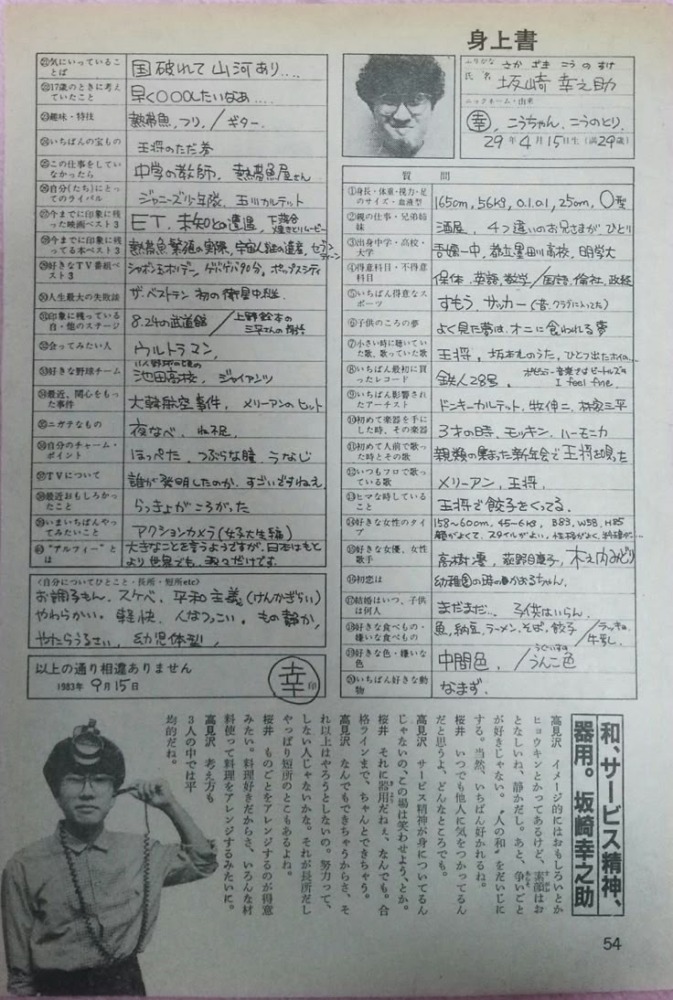 身上書
ふりがな さか ざき こう の すけ
氏名 坂崎 幸之助
ニックネーム・由来
幸, こうちゃん, こうのとり,
29年4月15日生(満29歳)
質問
①身長・体重・視力・足のサイズ・血液型 165cm, 56kg, 0.1 0.1, 25cm, O型
②親の仕事・兄弟姉妹 酒屋, 4つ違いのお兄さまが ひとり
③出身中学・高校・大学 吾嬬一中, 都立墨田川高校, 明学大
④得意科目・不得意科目 保体, 英語, 数学/国語, 倫社, 政経
⑤いちばん得意なスポーツ すもう, サッカー(昔, クラブに入ってた)
⑥子供のころの夢 よく見た夢は, オニに食われる夢
⑦小さい時に聴いていた歌、歌っていた歌 王将, 坂本九のうた, ひとつ出たホイの…
⑧いちばん最初に買ったレコード 鉄人28号, I feel fine.
⑨いちばん影響されたアーチスト ドンキーカルテット, 牧伸二, 林家三平
⑩初めて楽器を手にした時、その楽器 3才の時, モッキン, ハーモニカ
⑪初めて人前で歌った時とその歌 親類の集まった新年会で王将を唄った
⑫いつもフロで歌っている歌 メリーアン, 王将,
⑬ヒマな時していること 王将で餃子をくってる,
⑭好きな女性のタイプ 158〜600m, 45〜6kg, B83, W58, H85 顔がよくて, スタイルがよい, 性格がよく,
⑮好きな女優、女性歌手 高樹澪, 荻野目慶子, 木之内みどり
⑯初恋は 幼稚園の時のかおるちゃん,
⑰結婚はいつ、子供は何人 まだまだ… 子供はいらん,
⑱好きな食べもの・嫌いな食べもの 魚, 納豆, ラーメン, そば, 餃子/ラッキョ 牛乳し
⑲好きな色・嫌いな色 中間色,/うぐいす うんこ色
⑳いちばん好きな動物 なまず,
㉑気にいっていることば 国破れて山河あり....
㉒17歳のときに考えていたこと 早く〇〇〇したいなあ....
㉓趣味・特技 熱帯魚, フリ,/ギター,
㉔いちばんの宝もの 王将のただ券
㉕この仕事をしていなかったら 中学の教師, 熱帯魚屋さん
㉖自分(たち)にとってのライバル ジャニーズ少年隊, 玉川カルテット
㉗今までに印象に残った映画ベスト3 ET, 未知との遭遇,
㉘今までに印象に残ってる本ベスト3 熱帯魚繁殖の実際, 宇宙人謎の遺産, セブンティーン
㉙好きなTV番組ベスト3 シャボン玉ホリデー, ゲバゲバ90分, ポップスシティ
㉚人生最大の失敗談 ザ・ベストテン 初の衛星中継
㉛印象に残っている自・他のステージ 8.24の武道館/上野鈴本の三平さんの
㉜会ってみたい人 ウルトラマン,
㉝好きな野球チーム 池田高校, ジャイアンツ
㉞最近、関心をもった事件 大韓航空事件, メリーアンのヒット
㉟ニガテなもの 夜なべ, ね不足,
㊱自分のチャーム・ポイント ほっぺた, つぶらな瞳, うなじ
㊲TVについて 誰が発明したのか, すごいですねえ,
㊳最近おもしろかったこと らっきょがころがった
㊴いまいちばんやってみたいこと アクションカメラ(女子大生編)
㊵"アルフィー"とは 大きなことを言うようですが, 日本はもとより世界でも, 我々だけです.
〈自分についてひとこと・長所・短所etc〉
お調子もん, スケベ, 平和主義(けんかぎらい)
やわらかい, 軽快, 人なつっこい, もの静か,
やたらうるさい, 幼児体型,
以上の通り相違ありません
1983年9月15日
幸 印
和、サービス精神、
器用。坂崎幸之助
高見沢 イメージ的にはおもしろいとか
ヒョウキンとかってあるけど、素顔はお
となしいね、静かだし。あと、争いごと
が好きじゃない。"人の和"をだいじに
する。当然、いちばん好かれるね。
桜井 いつでも他人に気をつかってるん
だと思うよ、どんなところでも。
高見沢 サービス精神が身についてるん
じゃないの、この場は笑わせよう、とか。
桜井 それに器用だねぇ、なんでも。合
格ラインまで、ちゃんとできちゃう。
高見沢 なんでもできちゃうからさ、そ
れ以上はやろうとしないの。努力って、
しない人じゃないかな。それが長所だし
やっぱり短所のとこもあるよね。
桜井 ものごとをアレンジするのが得意
みたい。料理好きだからさ、いろんな材
料使って料理をアレンジするみたいに。
高見沢 考え方も
3人の中では平
均的だね。
54